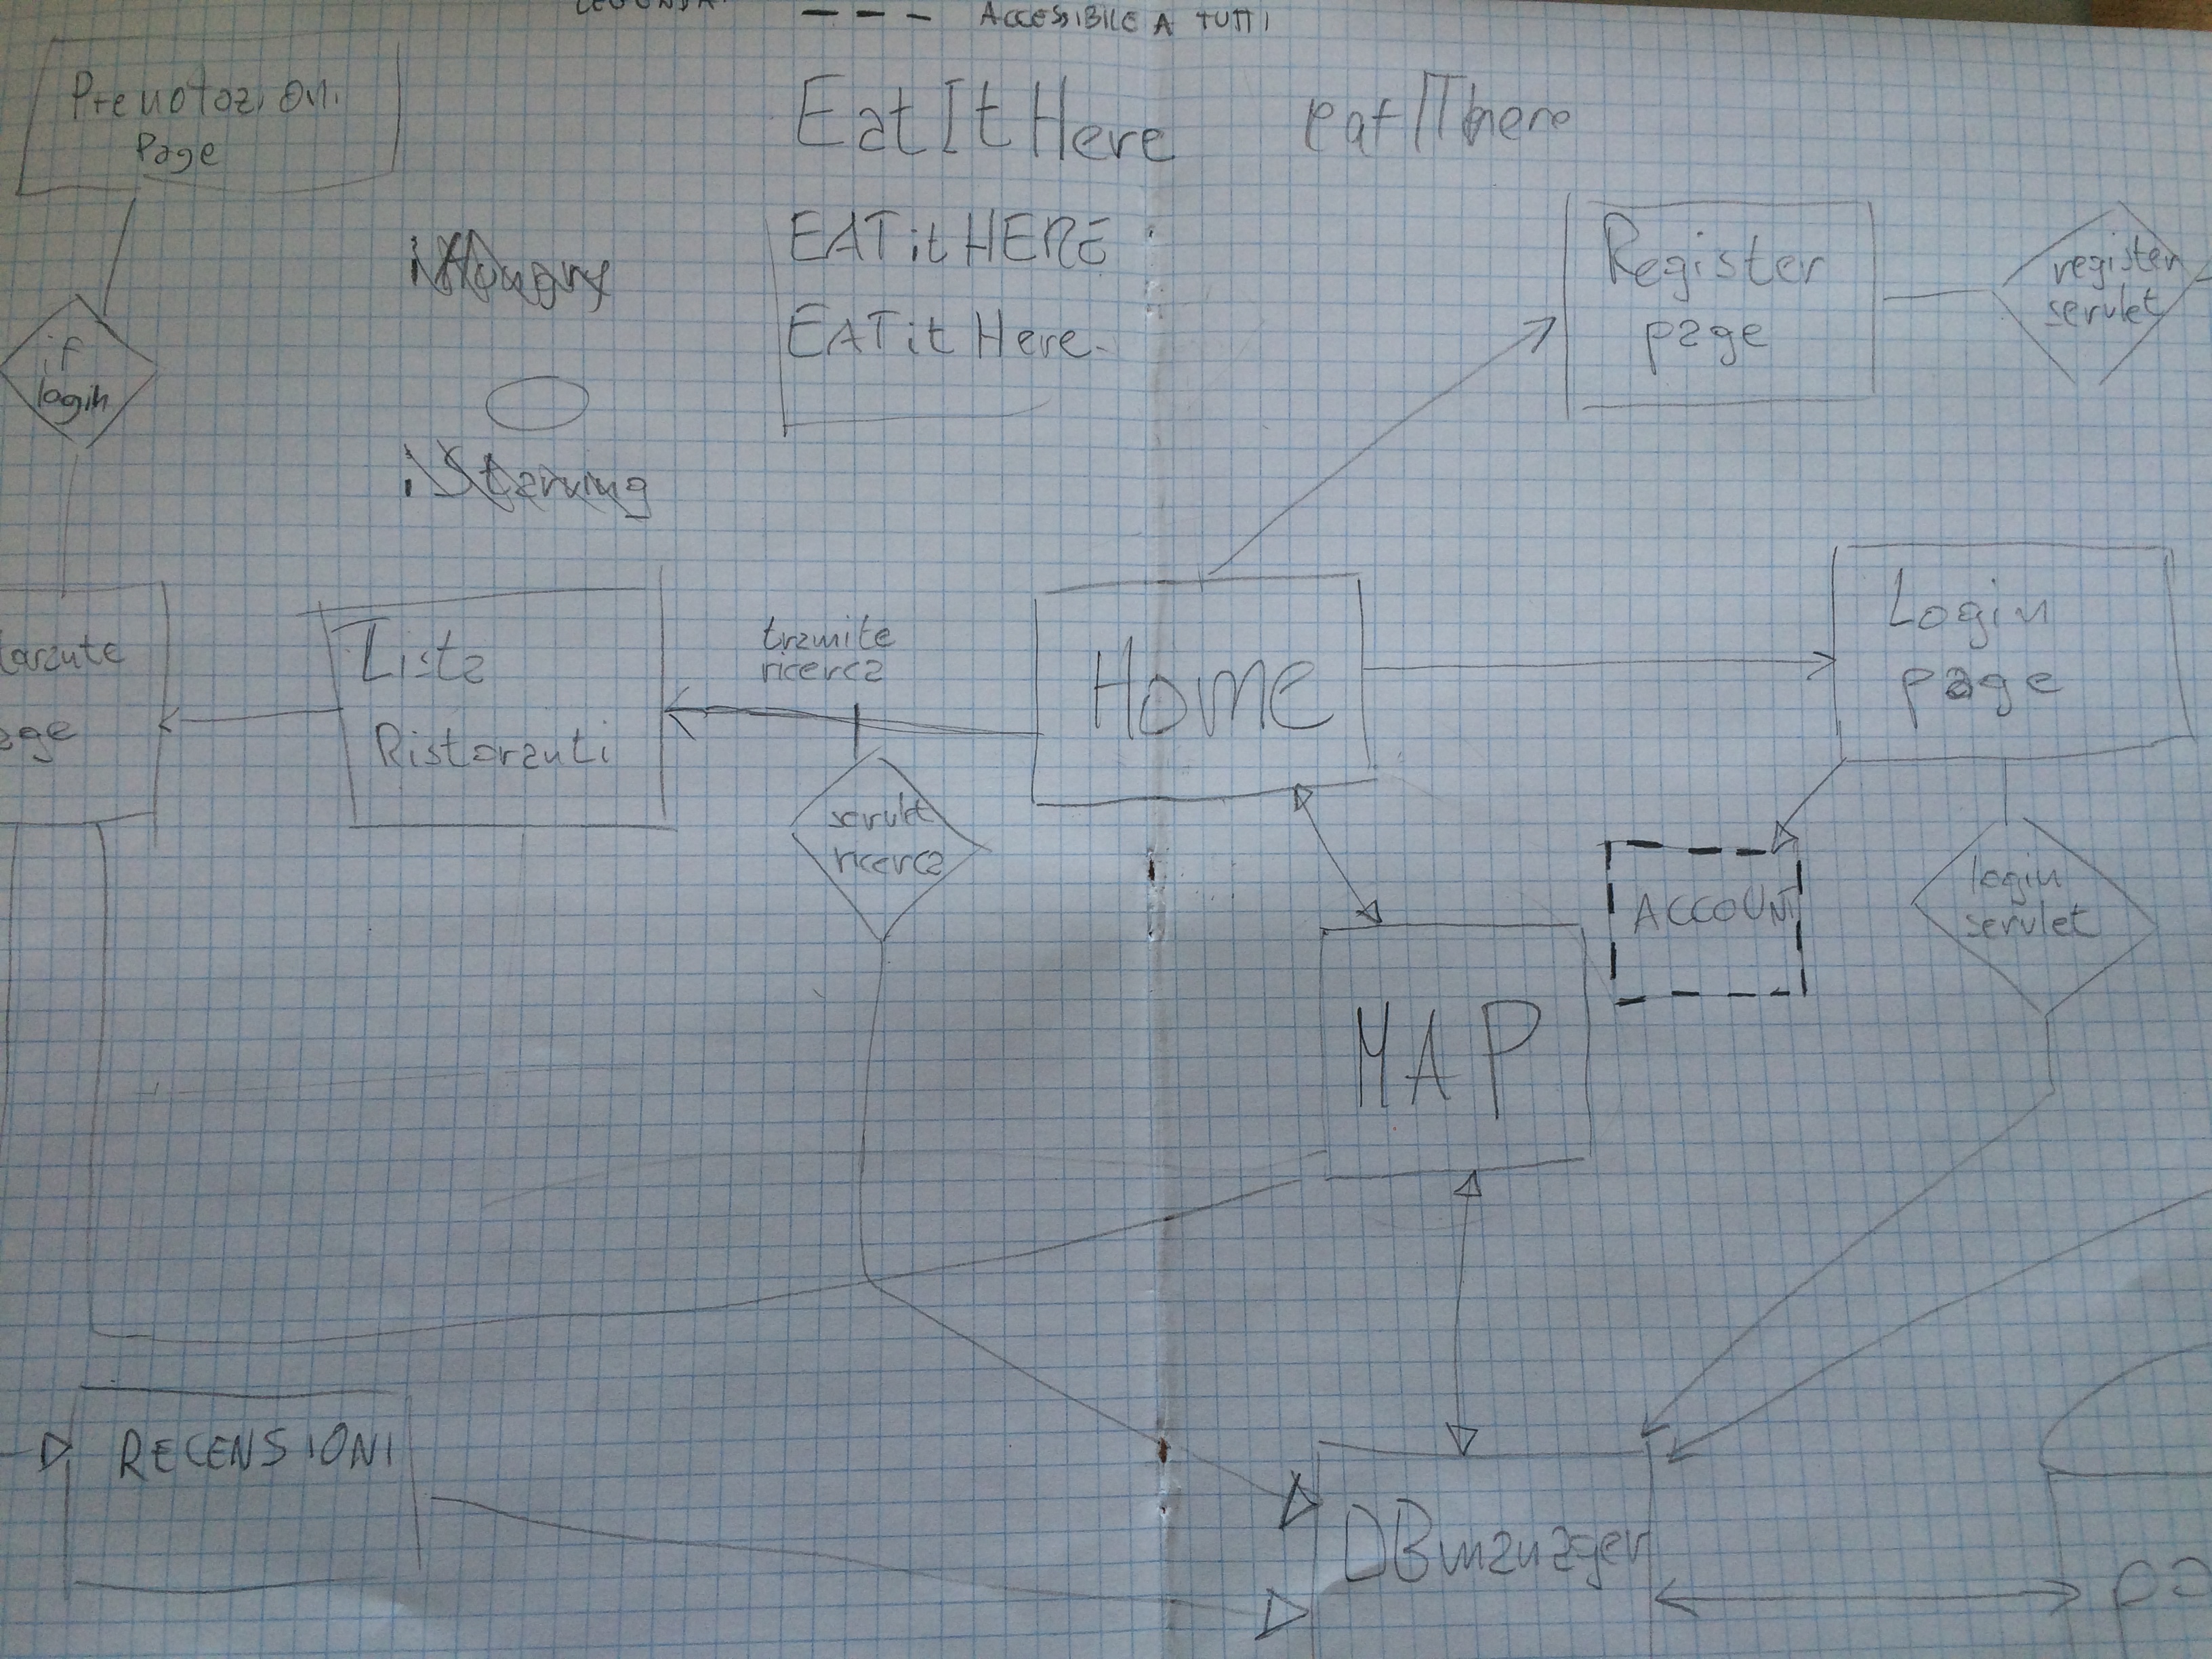 LEGENDA
ACCESSIBILE A TUTTI
Prenotazioni
Page
EatItHere
eatIThere
EATitHERE
EATitHere
iHungry
iStarving
Register
page
register
servlet
if
login
Lista
Ristoranti
tramite
ricerca
Home
Login
page
servlet
ricerca
ACCOUNT
login
servlet
MAP
RECENSIONI
DBmanager